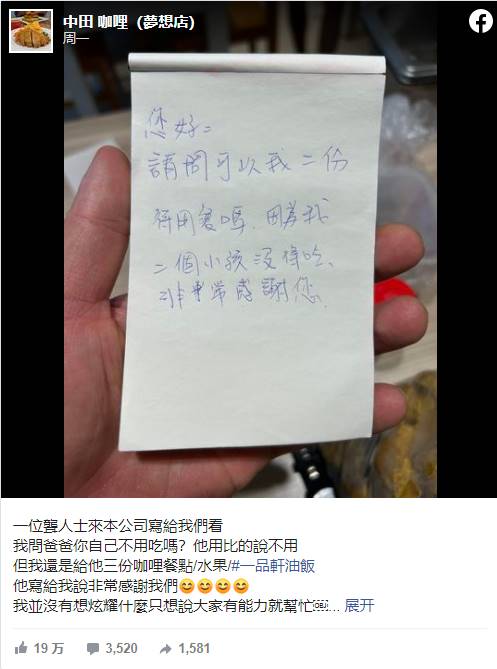 中田 咖哩（夢想店）
周一
您好:
請問可以我二份
待用餐嗎,因為我
二個小孩沒得吃、
非常感謝您
一位聾人士來本公司寫給我們看
我問爸爸你自己不用吃嗎？他用比的說不用
但我還是給他三份咖哩餐點/水果/#一品軒油飯
他寫給我說非常感謝我們😊😊😊😊
我並沒有想炫耀什麼只想說大家有能力就幫忙... 展开
19 万 3,520 1,581